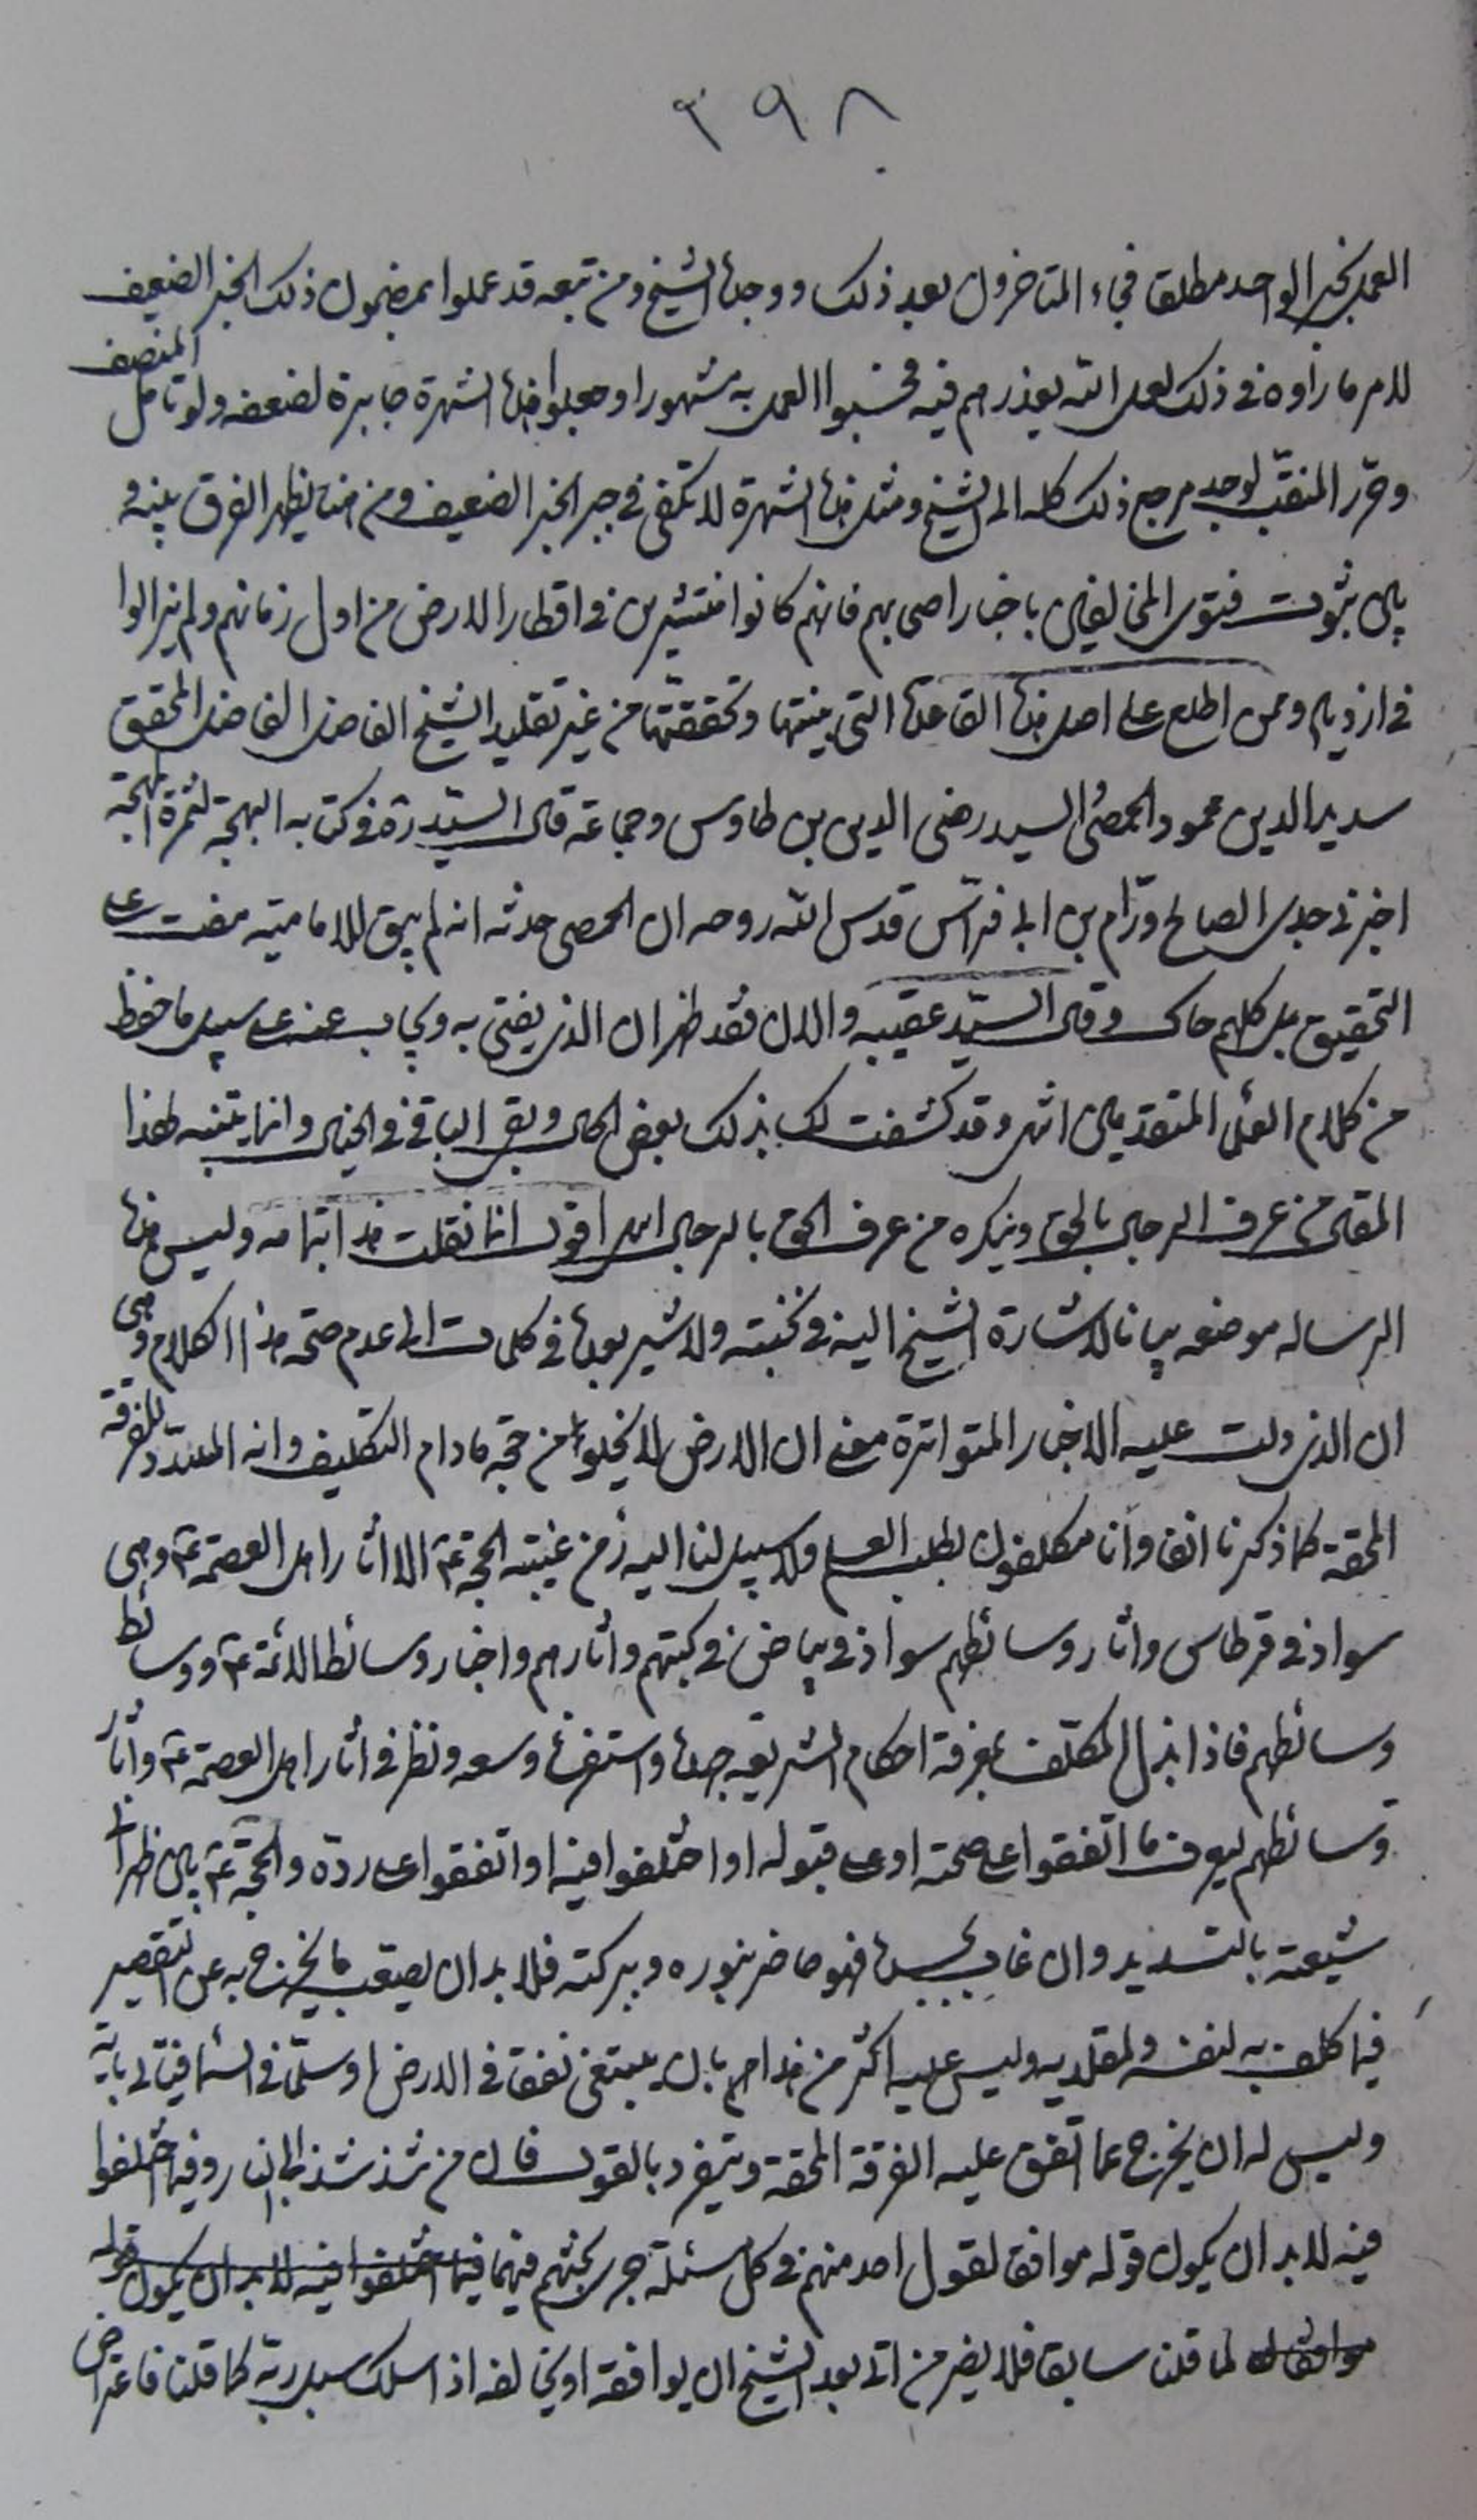 ٣٩٨
العمل بخبر الواحد مطلقا فجاء المتاخرون بعد ذلك ووجدوا الشيخ ومن تبعه قد عملوا بمضمون ذلك الخبر الضعيف
لامر ما رأوه في ذلك لعل الله يعذرهم فيه فحسبوا العمل به مشهورا وجعلوا هذه الشهرة جابرة لضعفه ولو تامل المنصف
وحرر المنقب لوجد مرجع ذلك كله الى الشيخ ومثل هذه الشهرة لا تكفى في جبر الخبر الضعيف ومن هنا يظهر الفرق بينه و
بين ثبوت فتوى المخالفين باخبار اصحابهم فانهم كانوا منتشرين في اقطار الارض من اول زمانهم ولم يزالوا
في ازدياد وممن اطلع على اصل هذه القاعدة التي بينتها وتحققتها من غير تقليد الشيخ الفاضل الفاضل المحقق
سديد الدين محمود الحمصي السيد رضى الدين بن طاوس وجماعة قال السيد ره في كتابه البهجة لثمرة المهجة
اخبرني جدي الصالح ورّام بن ابي فراس قدس الله روحه ان الحمصي حدثه انه لم يبق للامامية مفت على
التحقيق بل كلهم حاك وقال السيد عقيبه والان فقد ظهر ان الذي يفتى به ويجاب عنه على سبيل ما حفظ
من كلام العلماء المتقدمين انتهى وقد كشفت لك بذلك بعض الحال وبقى الباقي في الخيال وانما يتنبه لهذا
المقال من عرف الرجال بالحق وينكره من عرف الحق بالرجال انتهى اقول انما نقلت هذا بتمامه وليس هذه
الرسالة موضعه بيانا لاشارة الشيخ اليه في نخبته ولاشير بعدها في كلمات الى عدم صحة هذا الكلام وهي
ان الذي دلت عليه الاخبار المتواترة معنى ان الارض لا يخلو من حجة مادام التكليف وانه المسدد للفرقة
المحقة كما ذكرنا انفا وانا مكلفون بطلب العلم ولا سبيل لنا اليه زمن غيبته الحجة ع الا اثار اهل العصمة ع وهي
سواد في قرطاس واثار وسائطهم سواد في بياض في كتبهم واثارهم واخبار وسائط الائمة ع ووسائط
وسائطهم فاذا بذل المكلف بمعرفة احكام الشريعة جهده واستفرغ وسعه ونظر في اثار اهل العصمة ع واثار
وسائطهم ليعرف ما اتفقوا على صحته او على قبوله او اختلفوا فيه او اتفقوا على رده والحجة ع بين ظهراني
شيعته بالتسديد وان غاب بجسده فهو حاضر بنوره وببركته فلا بد ان يصيب ما يخرج به عن التقصير
فيما كلف به لنفسه ولمقلديه وليس عليه اكثر من هذا مر بان يبتغى نفقا في الارض او سلما في السماء فياتي باية
وليس له ان يخرج عما اتفق عليه الفرقة المحقة ويتفرد بالقول فان من شذ شذ الى النار وفيما اختلفوا
فيه لا بد ان يكون قوله موافقا لقول احد منهم في كل مسئلة جرى بحثهم فيها فيما اختلفوا فيه لا بد ان يكون قوله
موافقا له لما قلنا سابقا فلا يضر من اتى بعد الشيخ ان يوافقه او يخالفه اذا سلك سبل ربه كما قلنا فاعتراض